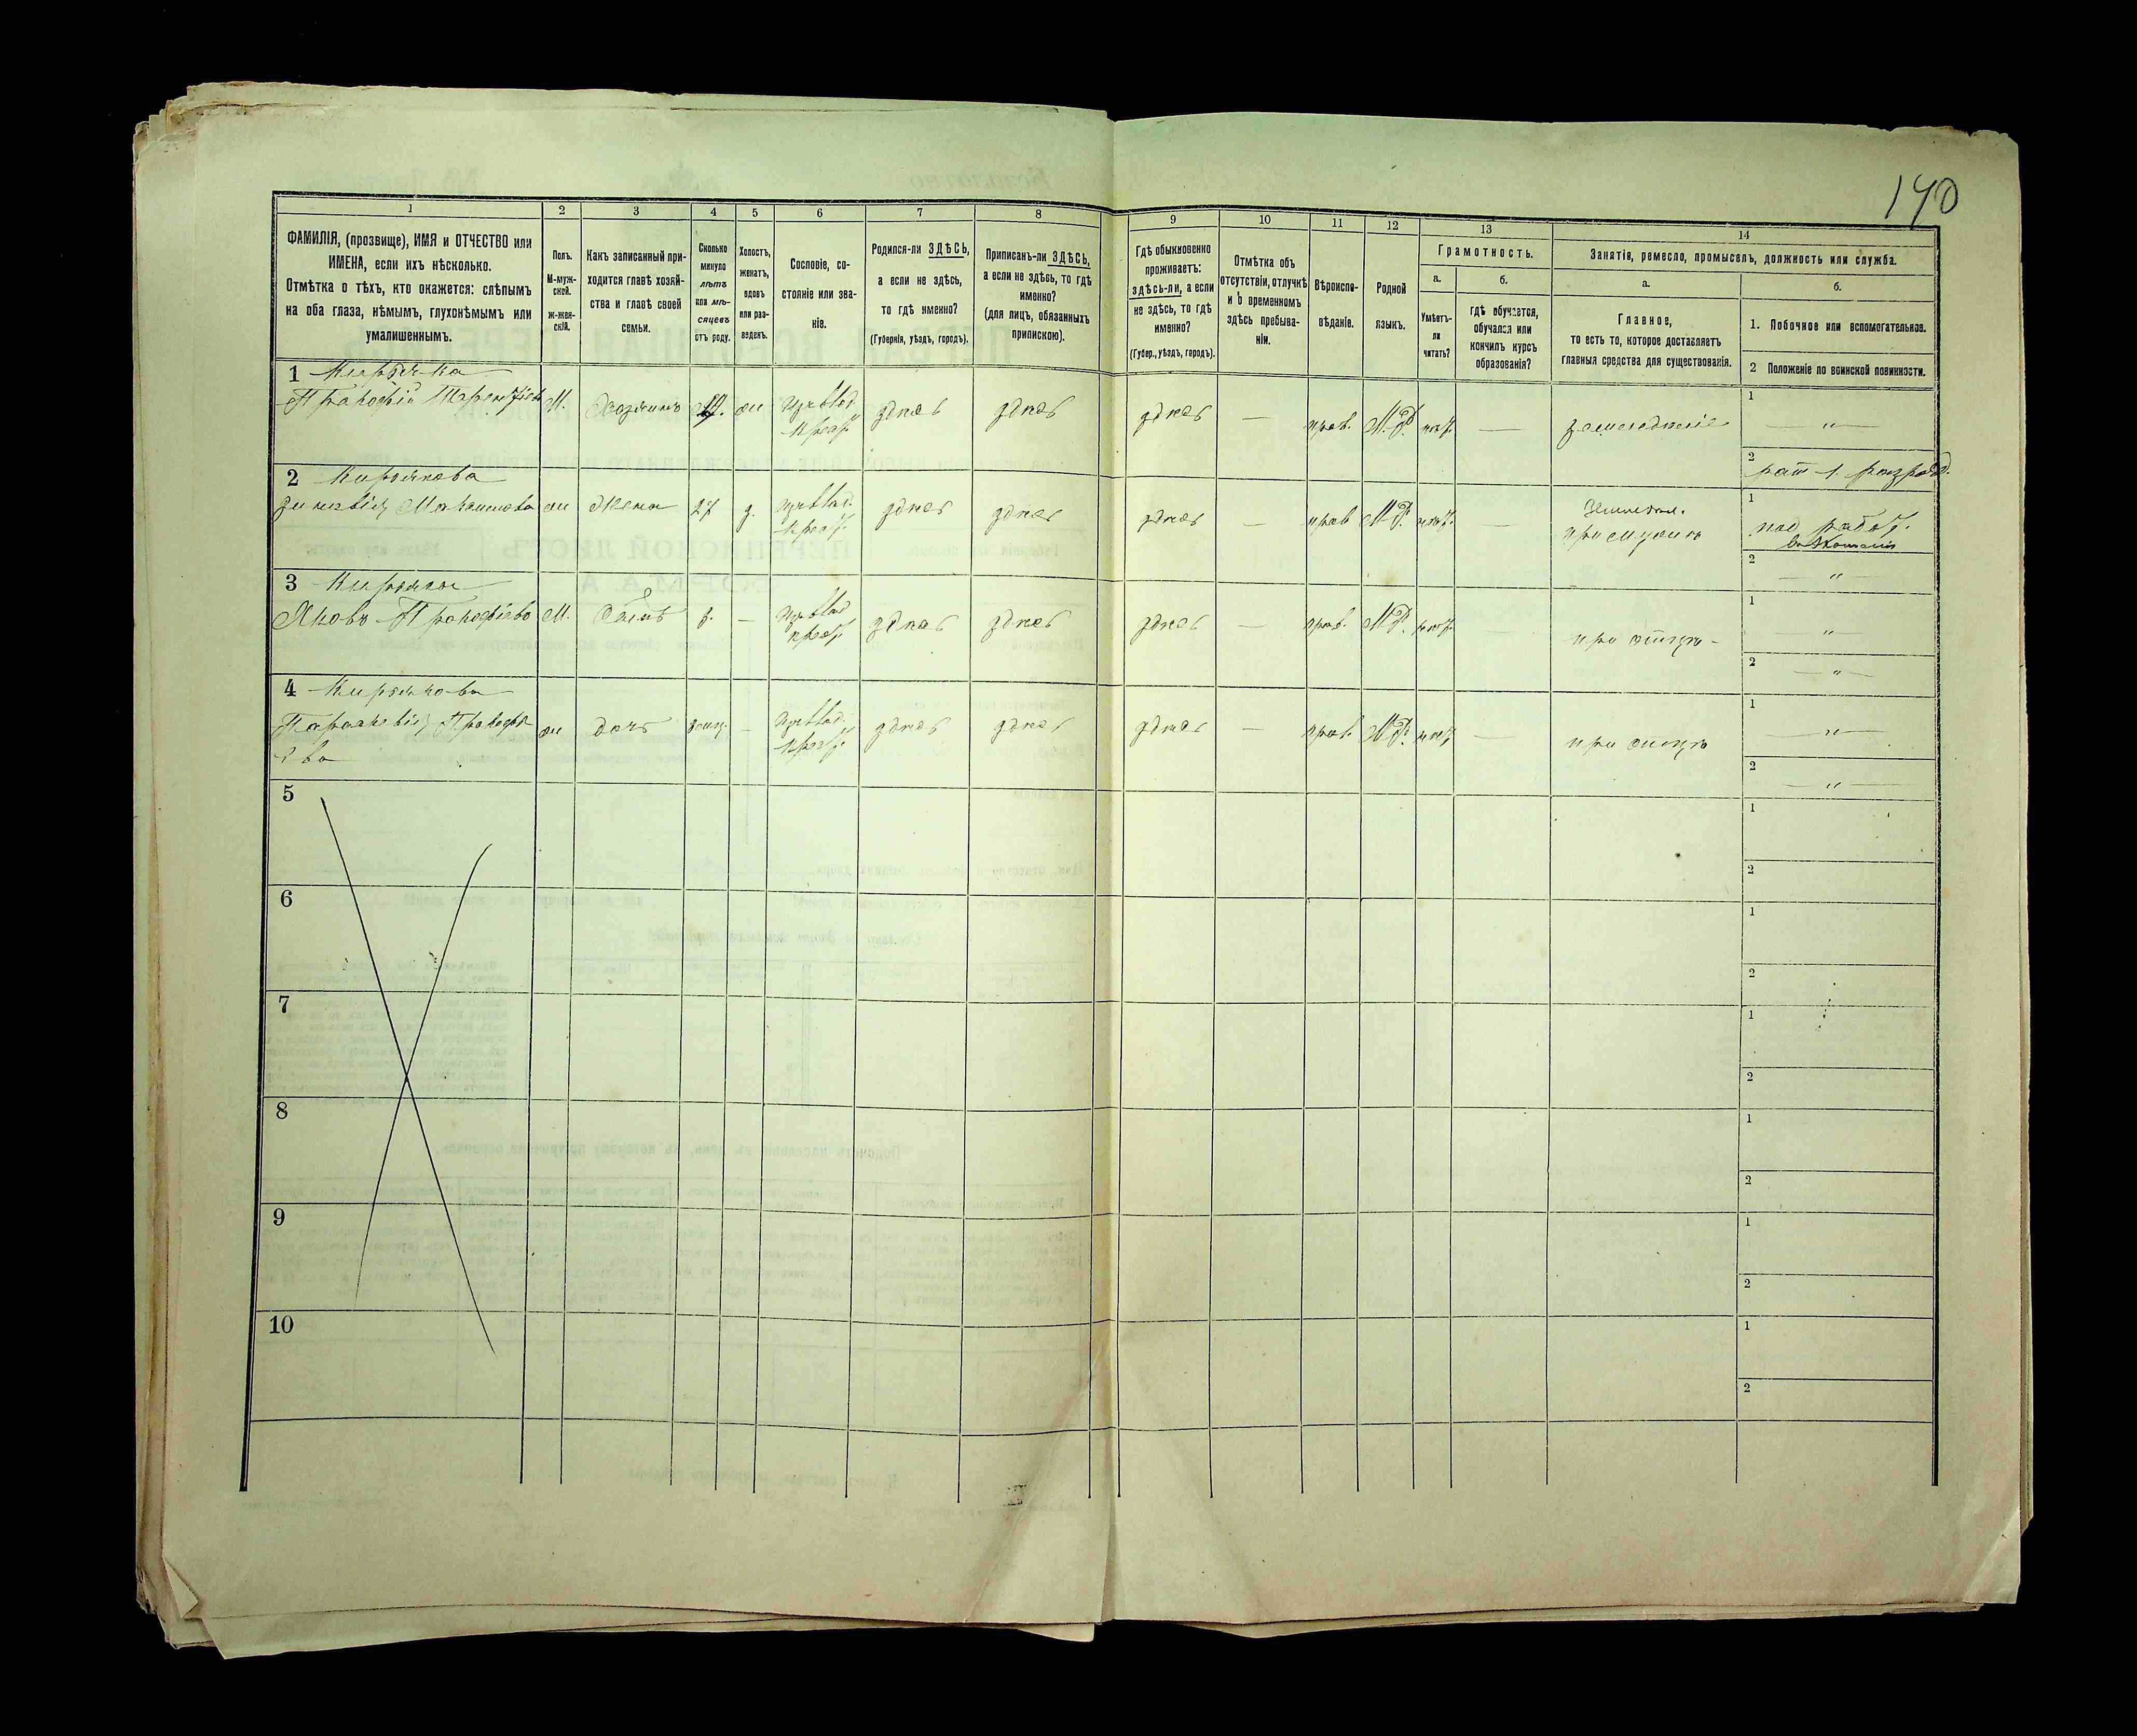 190
1
2
3
4
5
6
7
8
9
10
11
12
13
14
ФАМИЛІЯ, (прозвище), ИМЯ и ОТЧЕСТВО или
ИМЕНА, если ихъ нѣсколько.
Отмѣтка о тѣхъ, кто окажется: слѣпымъ
на оба глаза, нѣмымъ, глухонѣмымъ или
умалишеннымъ.
Полъ.
М-муж-
ской.
ж-жен-
скій.
Какъ записанный при-
ходится главѣ хозяй-
ства и главѣ своей
семьи.
Сколько
минуло
лѣтъ
или мѣ-
сяцевъ
отъ роду.
Холостъ,
женатъ,
вдовъ
или раз-
веденъ.
Сословіе, со-
стояніе или зва-
ніе.
Родился-ли ЗДѢСЬ,
а если не здѣсь,
то гдѣ именно?
(Губернія, уѣздъ, городъ).
Приписанъ-ли ЗДѢСЬ,
а если не здѣсь, то гдѣ
именно?
(для лицъ, обязанныхъ
припискою).
Гдѣ обыкновенно
проживаетъ:
здѣсь-ли, а если
не здѣсь, то гдѣ
именно?
(Губер., уѣздъ, городъ).
Отмѣтка объ
отсутствіи, отлучкѣ
и о временномъ
здѣсь пребыва-
ніи.
Вѣроиспо-
вѣданіе.
Родной
языкъ.
Грамотность.
а.
Умѣетъ-
ли
читать?
б.
гдѣ обучается,
обучался или
кончилъ курсъ
образованія?
Занятія, ремесло, промыселъ, должность или служба.
а.
Главное,
то есть то, которое доставляетъ
главныя средства для существованія.
б.
1. Побочное или вспомогательное.
2 Положеніе по воинской повинности.
1 Кирьяка
Прокофій Терентіев М. Хозяинъ ж здѣсь здѣсь здѣсь — прав. М.Р. нѣт. — земледѣліе
1 — " —
2 рат 1. разряд.
2 Кирьякова
Зиновія Максимова ж Жена 27 здѣсь здѣсь здѣсь — прав М.Р. нѣт. — при мужѣ
1 под работ.
2 — " —
3 Кирьяка
Яковъ Прокофіевъ М. Сынъ — здѣсь здѣсь здѣсь — прав. М.Р. нѣт. при отцѣ -
1 — " —
2 — " —
4 Кирьякова
Параскевія Прокофі
ева ж дочь — здѣсь здѣсь здѣсь — прав. М.Р. нѣт — при отцѣ
1 — " —
2 — " —
5
1
2
6
1
2
7
1
2
8
1
2
9
1
2
10
1
2